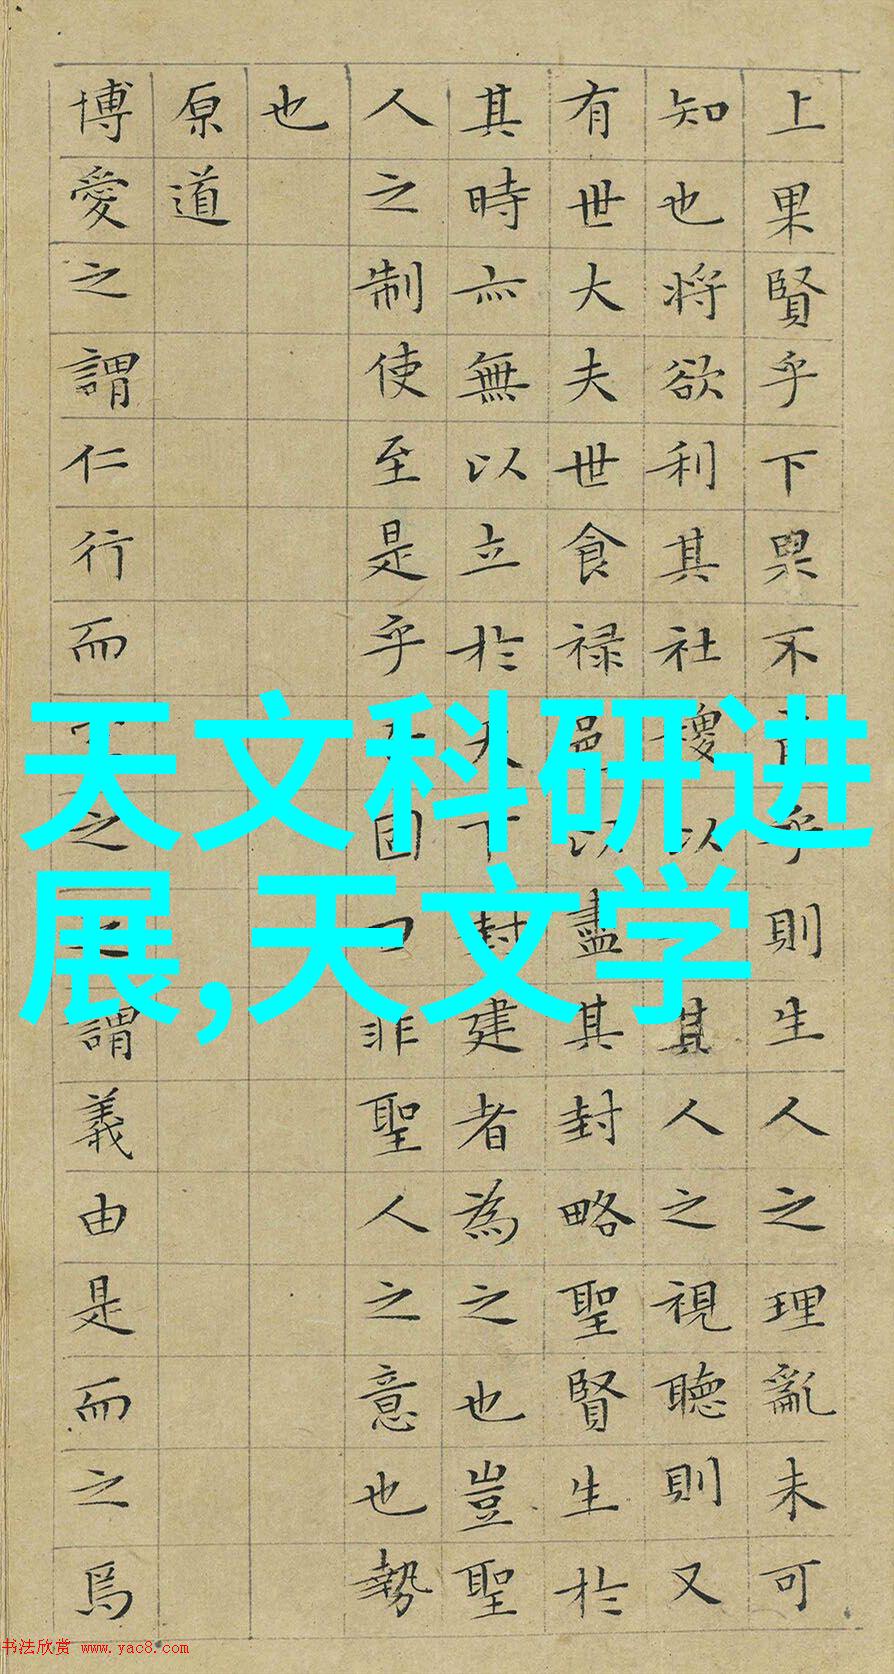 上果賢乎下果不乎則生人之理亂未可
知也将欲利其社以其人之視聽則又
有世大夫世食禄邑以盡其封略聖賢生於
其時亦無以立於天下封建者為之也豈聖
人之制使至是乎固曰非聖人之意也勢
也
原道
博愛之謂仁行而之之謂義由是而之焉
天文科研进
展,天文学
书法欣赏 www.yac8.com